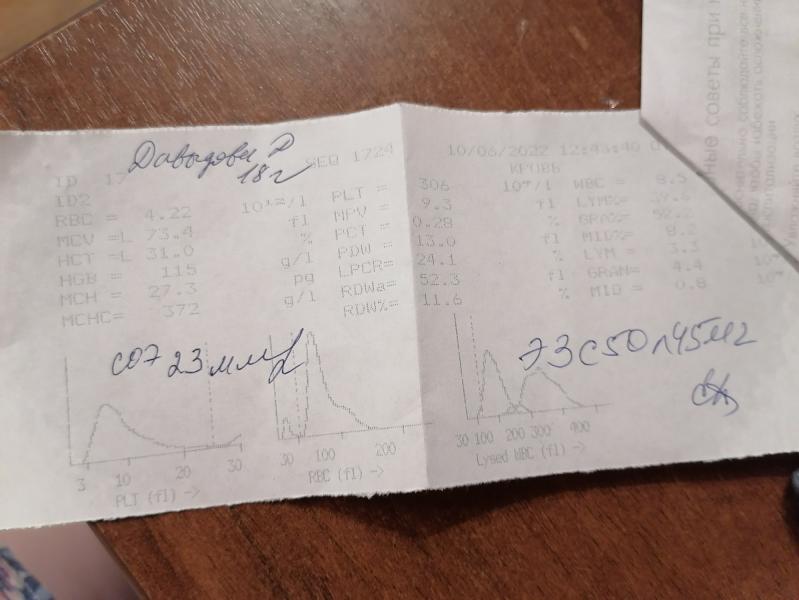 Давыдова Д
18г
ID 17
SEQ 1724
10/06/2022 12:43:40
ID2
КРОВЬ
RBC = 4.22 10¹²/l
MCV =L 73.4 fl
HCT =L 31.0 %
HGB = 115 g/l
MCH = 27.3 pg
MCHC= 372 g/l
PLT = 306 10⁹/l
MPV = 9.3 fl
PCT = 0.28 %
PDW = 13.0 fl
LPCR= 24.1 %
RDWa= 52.3 fl
RDW%= 11.6 %
WBC = 8.5
LYM%=
GRA%=
MID%= 8.2
LYM = 3.3 10⁹
GRAN= 4.4 10⁹
MID = 0.8 10⁹
СОЭ 23 мм/
э3 с50 л45 м2
3 10 20 30
PLT (fl) ->
30 100 200
RBC (fl) ->
30 100 200 300 400
Lysed WBC (fl) ->
советы при